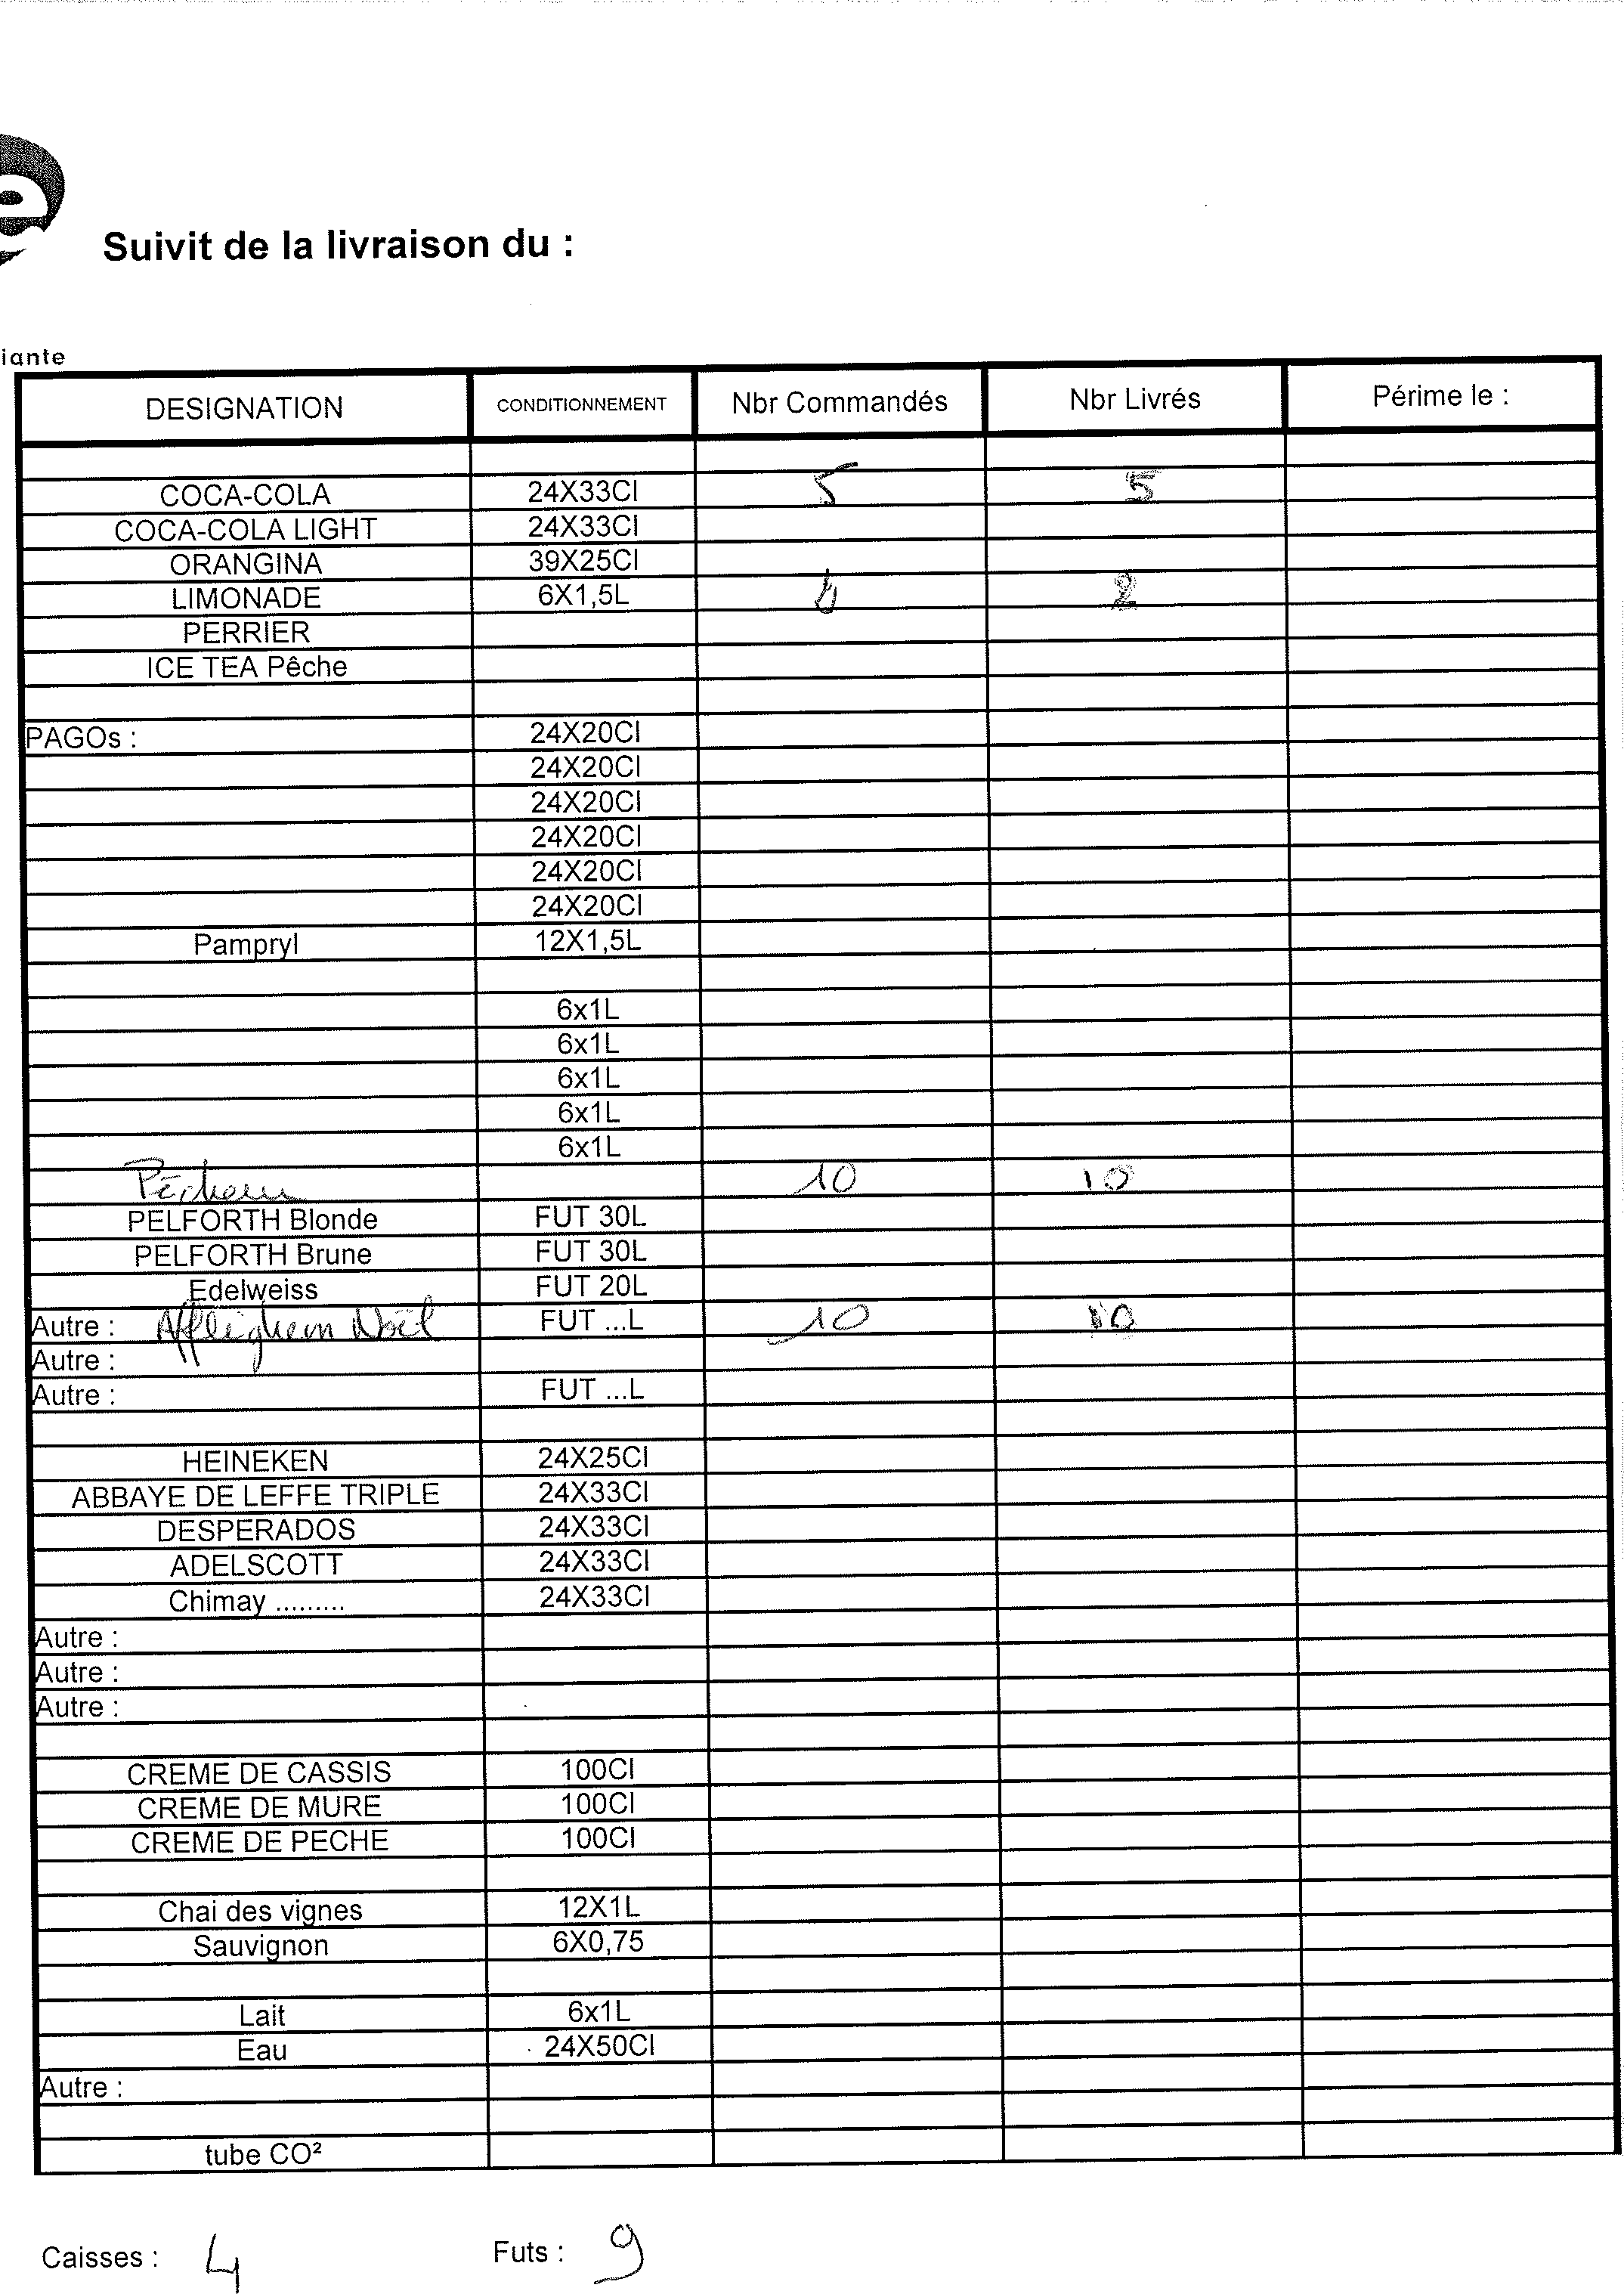 e
Suivit de la livraison du :
iante
DESIGNATION CONDITIONNEMENT Nbr Commandés Nbr Livrés Périme le :
COCA-COLA 24X33Cl 5 5
COCA-COLA LIGHT 24X33Cl
ORANGINA 39X25Cl
LIMONADE 6X1,5L 2
PERRIER
ICE TEA Pêche
PAGOs : 24X20Cl
24X20Cl
24X20Cl
24X20Cl
24X20Cl
24X20Cl
Pampryl 12X1,5L
6x1L
6x1L
6x1L
6x1L
6x1L
10 10
PELFORTH Blonde FUT 30L
PELFORTH Brune FUT 30L
Edelweiss FUT 20L
Autre : Affleighem Noël FUT ...L 10 10
Autre :
Autre : FUT ...L
HEINEKEN 24X25Cl
ABBAYE DE LEFFE TRIPLE 24X33Cl
DESPERADOS 24X33Cl
ADELSCOTT 24X33Cl
Chimay ......... 24X33Cl
Autre :
Autre :
Autre :
CREME DE CASSIS 100Cl
CREME DE MURE 100Cl
CREME DE PECHE 100Cl
Chai des vignes 12X1L
Sauvignon 6X0,75
Lait 6x1L
Eau 24X50Cl
Autre :
tube CO²
Caisses : 4 Futs : 9